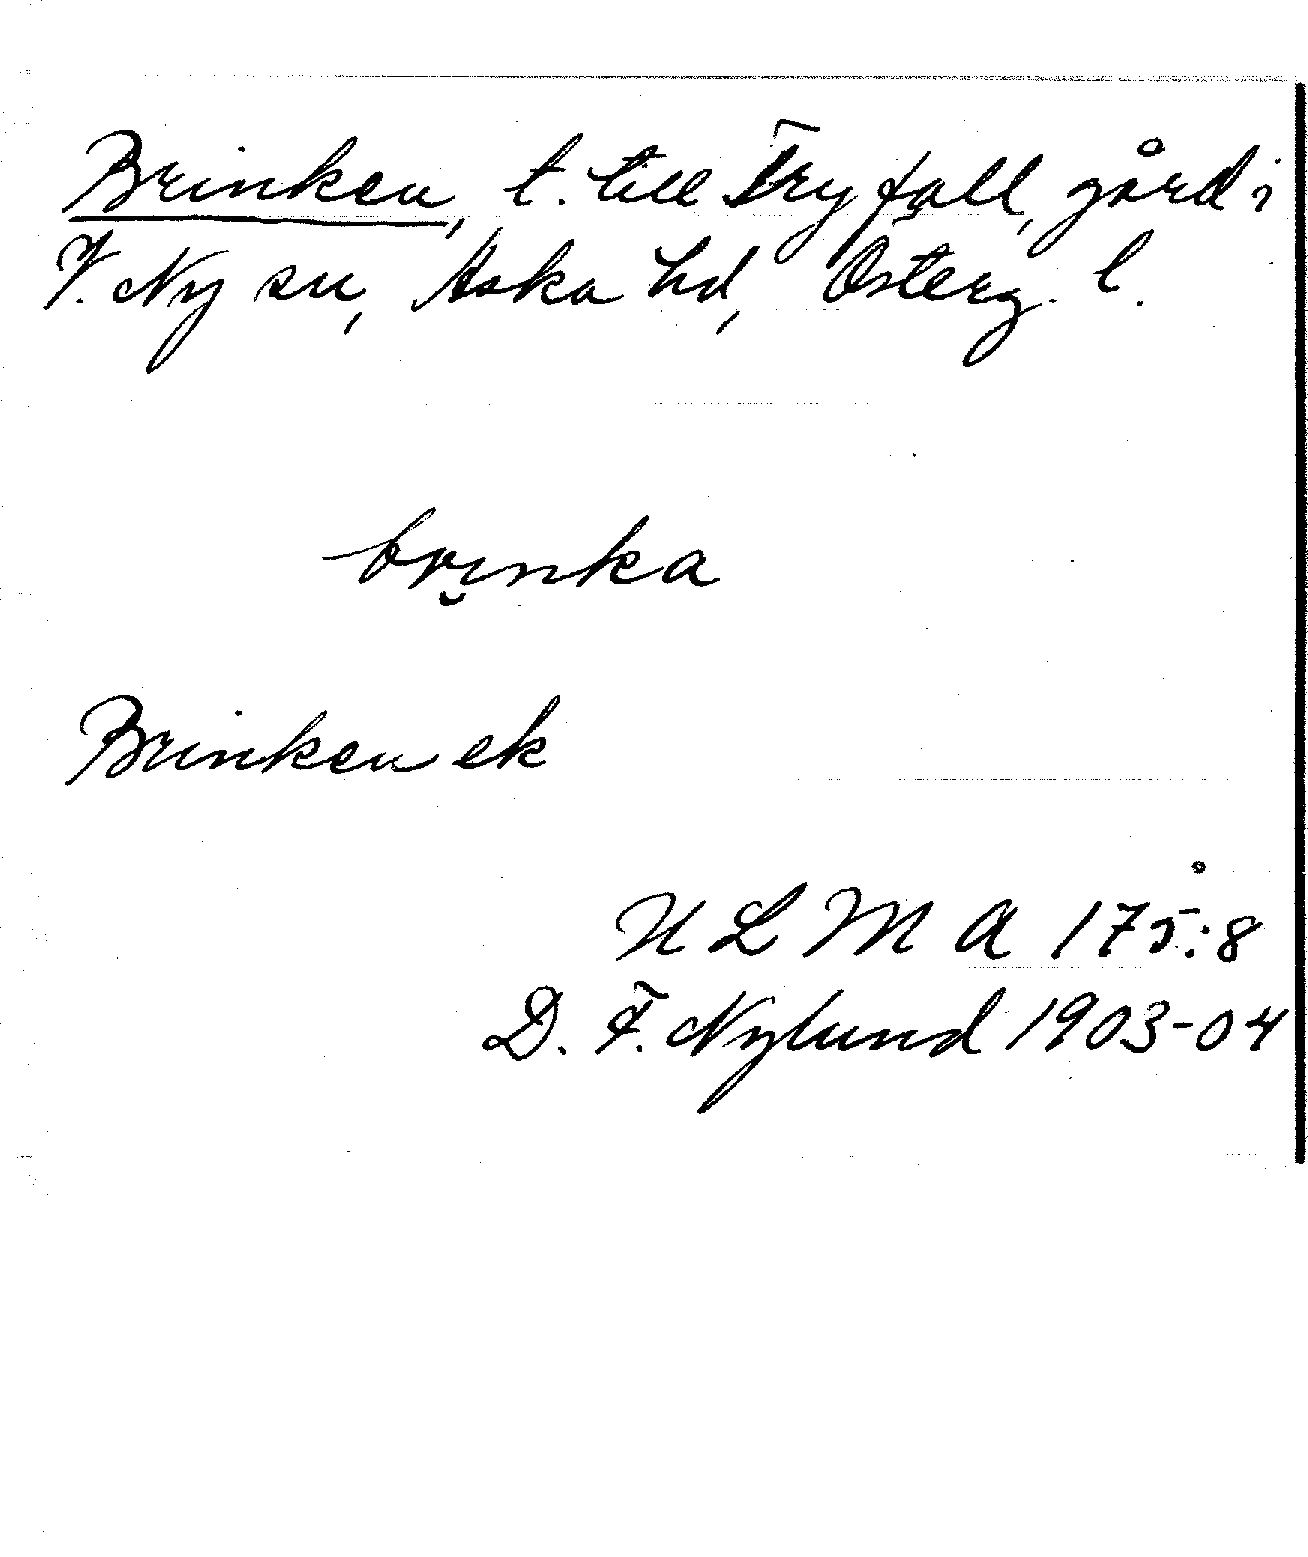 Brinken, t. till Tryfall, gård i
V. Ny sn, Aska hd, Österg. l.
brinka
Brinken ek
ULMA 175:8
D. F. Nylund 1903-04